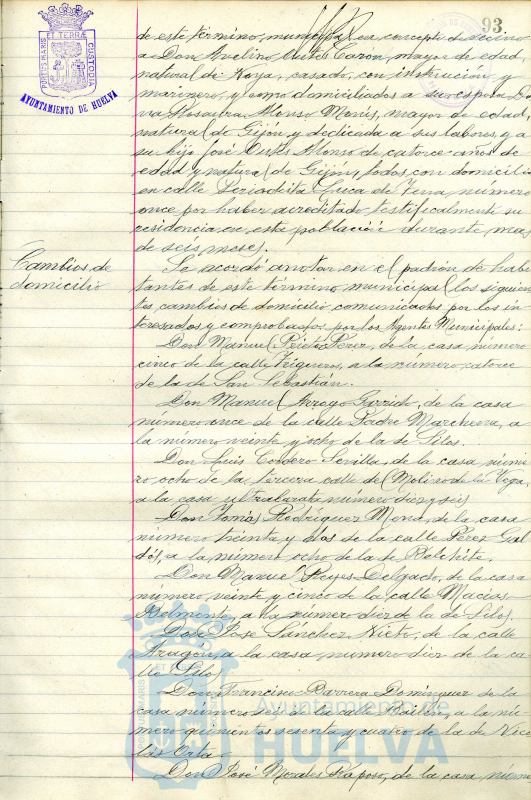 93.
PORTUS MARIS ET TERRÆ CUSTODIA
AYUNTAMIENTO DE HUELVA
de este término municipal en concepto de vecino
a Don Avelino Carón, mayor de edad,
natural de casado, con instrucción y
y como domiciliados a su esposa Do-
ña Rosaura Alonso Monis, mayor de edad,
natural de Gijón y dedicada a sus labores, y a
su hijo José Alonso de catorce años de
edad y natural de Gijón, todos con domicilio
en calle Periodista Luca de Tena número
once por haber acreditado testificalmente su
residencia en esta población durante mas
de seis meses.
Cambios de
domicilio
Se acordó anotar en el padrón de habi-
tantes de este término municipal los siguien-
tes cambios de domicilio comunicados por los in-
teresados y comprobados por los Agentes Municipales:
Don Manuel Prieto Pérez, de la casa número
cinco de la calle Trigueros, a la número catorce
de la de San Sebastián.
Don Manuel Arroyo Garrido, de la casa
número once de la calle Padre Marchena, a
la número veinte y ocho de la de Silos.
Don Luis Cordero Sevilla, de la casa núme-
ro ocho de la tercera calle de Molino de la Vega,
a la casa ultrabarata número diez y seis
Don Tomás Rodríguez Mena, de la casa
número treinta y dos de la calle Pérez Gal-
dós, a la número ocho de la de Belchite.
Don Manuel Reyes Delgado, de la casa
número veinte y cinco de la calle Macías
Belmonte, a la número diez de la de Silos.
José Sánchez Nieto, de la calle
Aragón, a la casa número diez de la ca-
lle Silos
Don Francisco Barrera Domínguez de la
casa número seis de la calle Bailén, a la nú-
mero quinientos sesenta y cuatro de la de Vice
la Orta.
Don José Morales Raposo, de la casa núme-
Ayuntamiento de
HUELVA